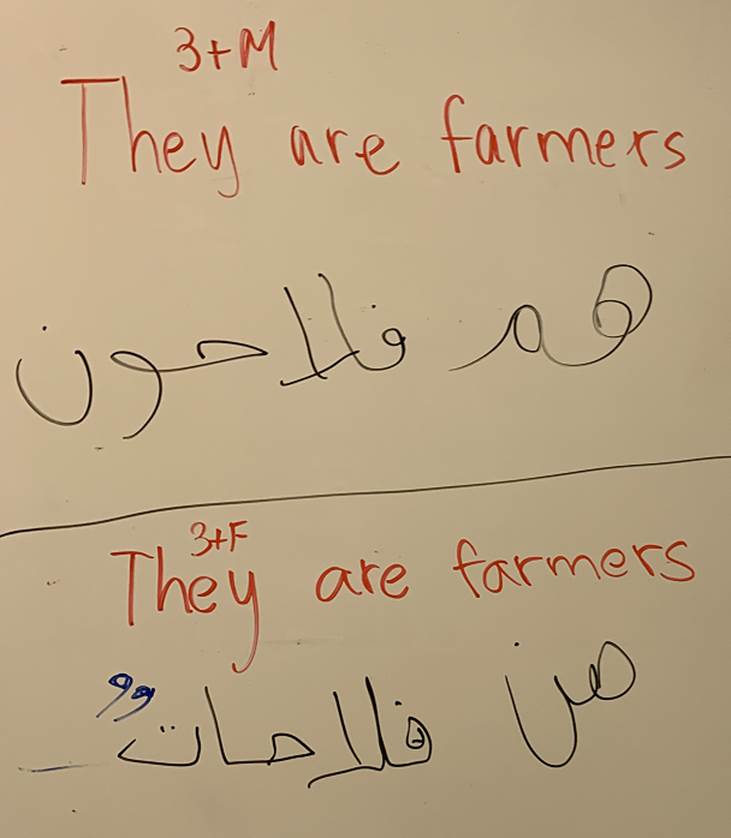 3+M
They are farmers
هم فلاحون
3+F
They are farmers
هن فلاحاتٌ